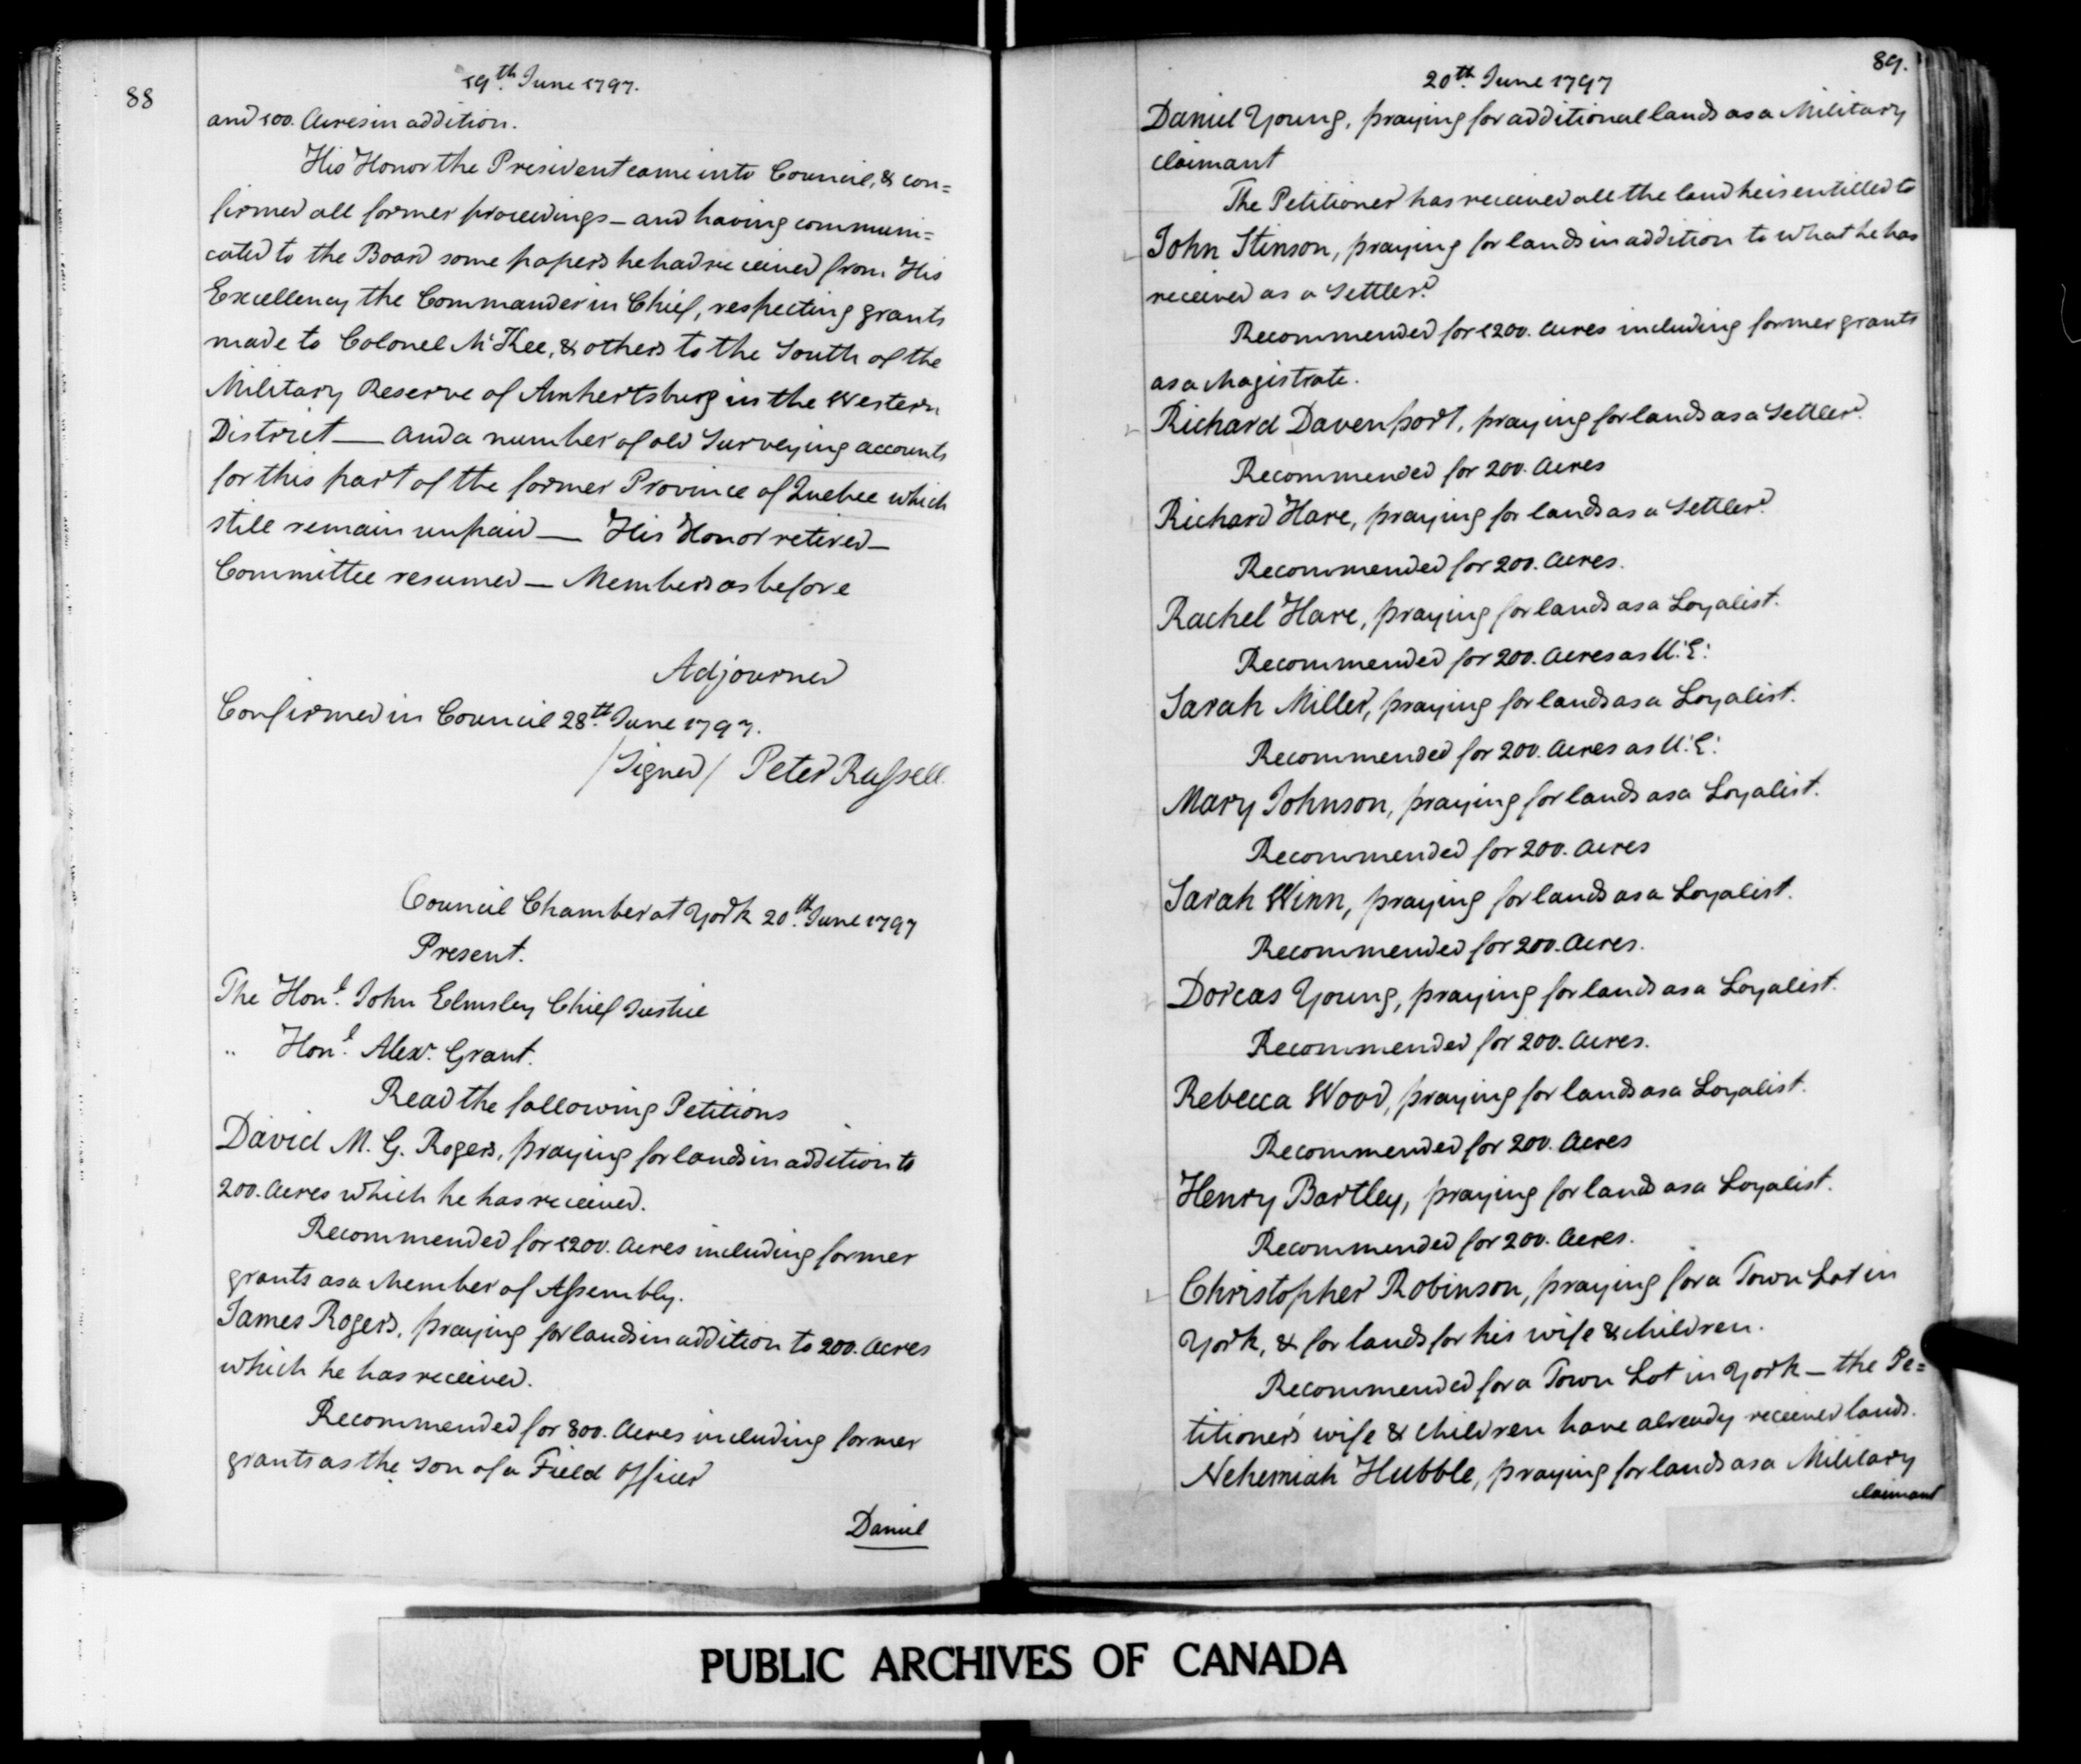 88
19th. June 1797.
and 100. Acres in addition.
His Honor the President came into Council, & con=
firmed all former proceedings – and having communi=
cated to the Board some papers he had received from His
Excellency the Commander in Chief, respecting grants
made to Colonel McKee, & others to the South of the
Military Reserve of Amhertsburg in the Western
District — And a number of old Surveying accounts
for this part of the former Province of Quebec which
still remain unpaid — His Honor retired –
Committee resumed – Members as before
Adjourned
Confirmed in Council 28th. June 1797.
/Signed/ Peter Russell.
Council Chamber at York 20th. June 1797
Present.
The Honl. John Elmsley Chief Justice
" Honl. Alexr. Grant.
Read the following Petitions
David M. G. Rogers, praying for lands in addition to
200. Acres which he has received.
Recommended for 1200. Acres including former
grants as a Member of Assembly.
James Rogers, praying for lands in addition to 200. Acres
which he has received.
Recommended for 800. Acres including former
grants as the son of a Field Officer
Daniel
89.
20th. June 1797
Daniel Young, praying for additional lands as a Military
claimant
The Petitioner has received all the land he is entitled to
John Stinson, praying for lands in addition to what he has
received as a Settler.
Recommended for 1200. Acres including former grants
as a Magistrate.
Richard Davenport, praying for lands as a Settler.
Recommended for 200. Acres
Richard Hare, praying for lands as a Settler.
Recommended for 200. Acres.
Rachel Hare, praying for lands as a Loyalist.
Recommended for 200. Acres as U.E.
Sarah Miller, praying for lands as a Loyalist.
Recommended for 200. Acres as U.E.
Mary Johnson, praying for lands as a Loyalist.
Recommended for 200. Acres
Sarah Winn, praying for lands as a Loyalist.
Recommended for 200. Acres.
Dorcas Young, praying for lands as a Loyalist.
Recommended for 200. Acres.
Rebecca Wood, praying for lands as a Loyalist.
Recommended for 200. Acres
Henry Bartley, praying for lands as a Loyalist.
Recommended for 200. Acres.
Christopher Robinson, praying for a Town Lot in
York, & for lands for his wife & children.
Recommended for a Town Lot in York – the Pe=
titioner's wife & children have already received lands.
Nehemiah Hubble, praying for lands as a Military
claimant
PUBLIC ARCHIVES OF CANADA